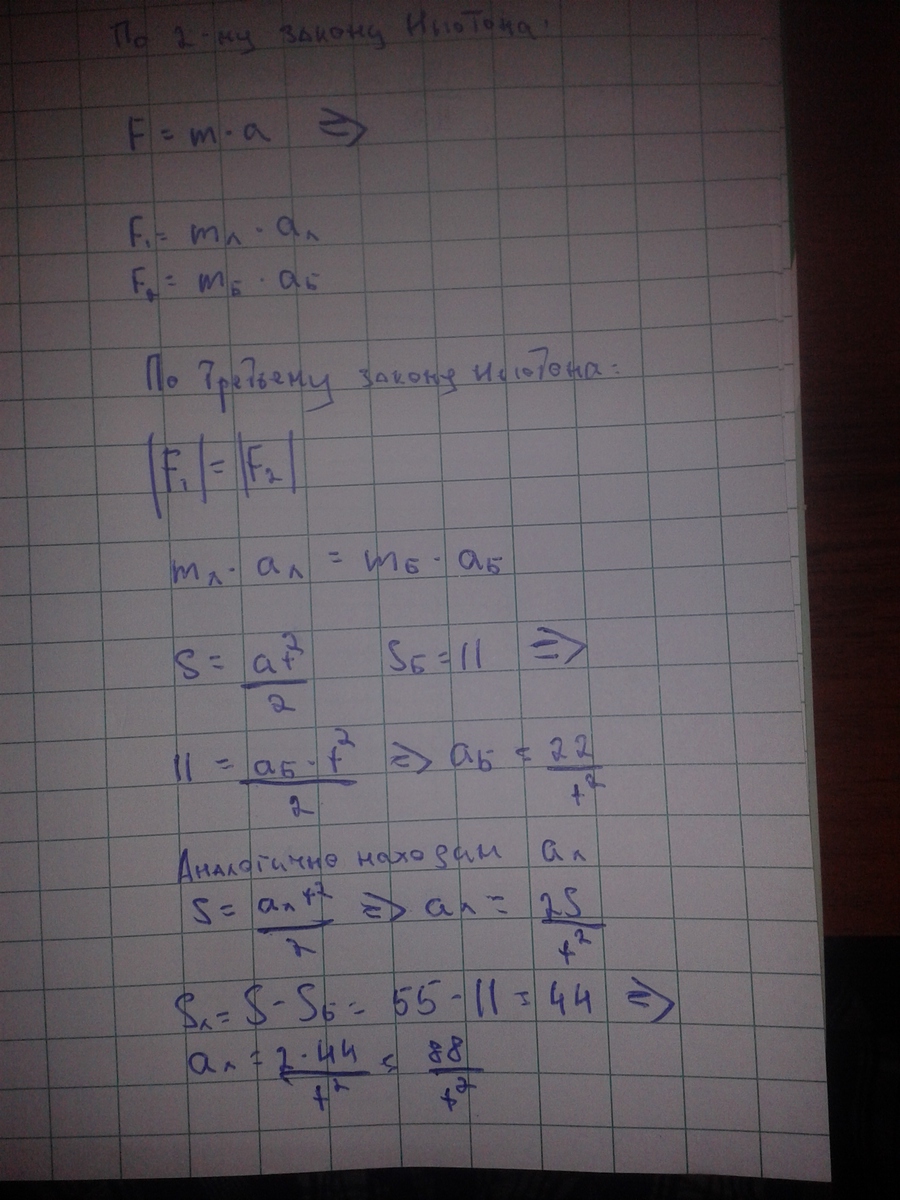 По 2-му закону Ньютона:
F = m · a ⇒
F₁ = mл · aл
F₂ = mБ · aБ
По третьему закону Ньютона:
|F₁| = |F₂|
mл · aл = mБ · aБ
S = at²/2 SБ = 11 ⇒
11 = aБ · t²/2 ⇒ aБ = 22/t²
Аналогично находим aл
S = aл t²/2 ⇒ aл = 2S/t²
Sл = S - SБ = 55 - 11 = 44 ⇒
aл = 2·44/t² = 88/t²